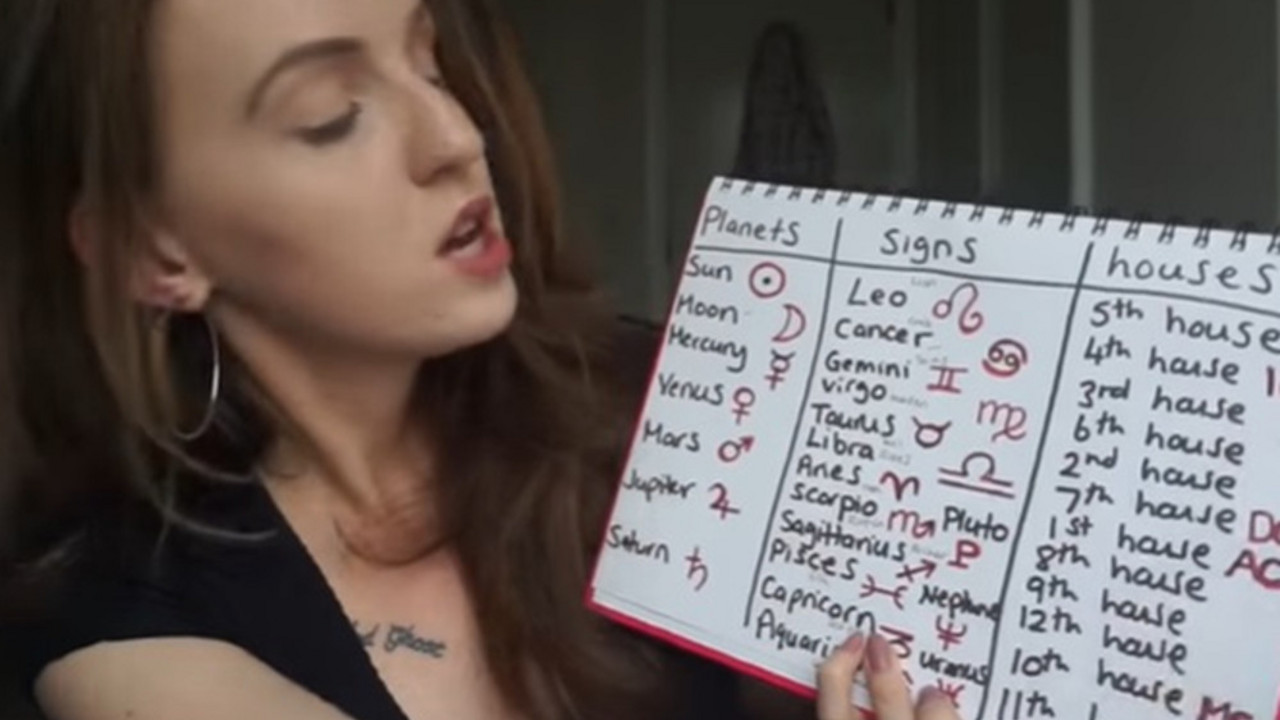 Planets Signs houses
Sun ☉ Leo ♌ 5th house
Moon ☽ Cancer ♋ 4th house
Mercury ☿ Gemini ♊ 3rd house
Venus ♀ virgo ♍ 6th house
Mars ♂ Taurus ♉ 2nd house
Libra ♎ 7th house
Jupiter ♃ Aries ♈ 1st house AC
Scorpio ♏ Pluto ♇ 8th house
Saturn ♄ Sagittarius ♐ 9th house
Pisces ♓ Neptune ♆ 12th house
Capricorn ♑ uranus ♅ 10th house
11th
Ghost